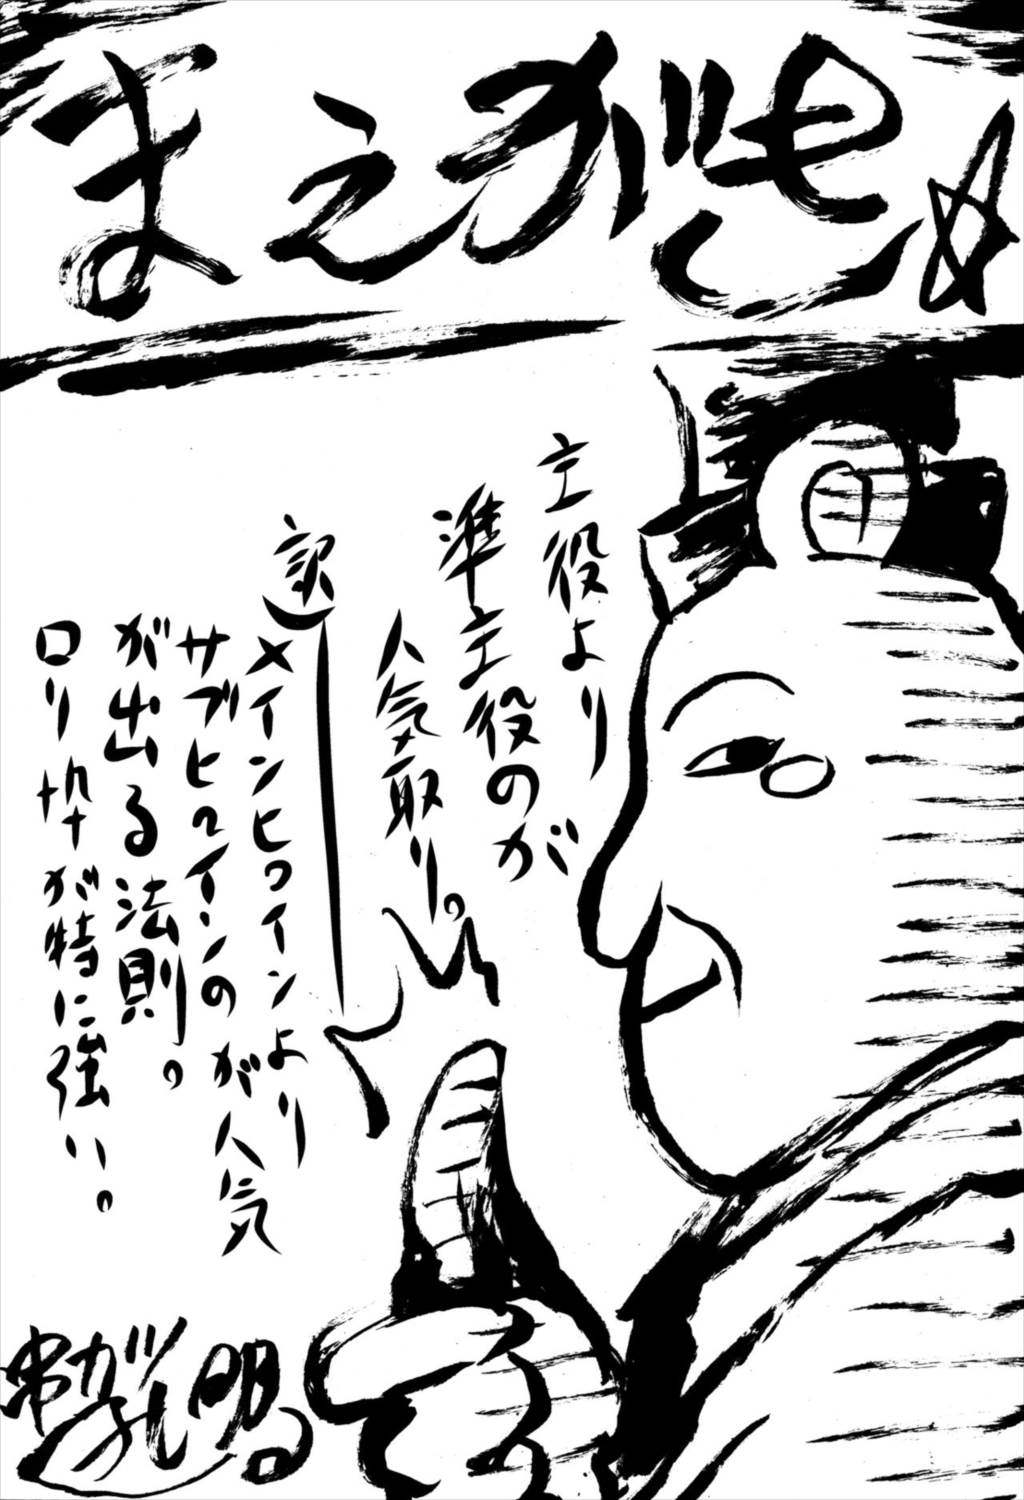 まえがき☆
主役より
準主役のが
人気取り。
訳)メインヒロインより
サブヒロインのが人気
が出る法則。
ロリ枠が特に強い。